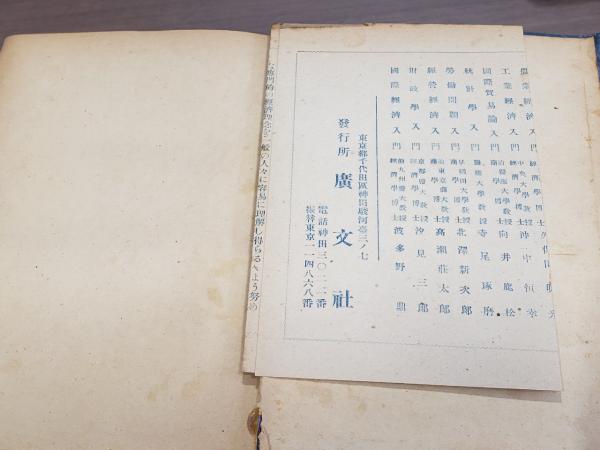 農業經濟入門 經濟學博士
工業經濟入門 中央大學教授 經濟學博士 沖中恒幸
國際貿易論入門 商學博士 向井鹿松
統計學入門 慶應大學教授 寺尾琢磨
勞働問題入門 早稻田大學教授 商學博士 北澤新次郎
經營經濟入門 前東京商大教授 商學博士 高瀬莊太郎
財政學入門 京都大學教授 經濟學博士 汐見三郎
國際經濟入門 前九州大教授 經濟學博士 波多野鼎
東京都千代田區神田駿河臺三ノ七
發行所 廣文社
電話神田三〇二二番
振替東京一一四八六八番
門的の經濟理念を一般の人々に容易に理解し得らるゝよう努め